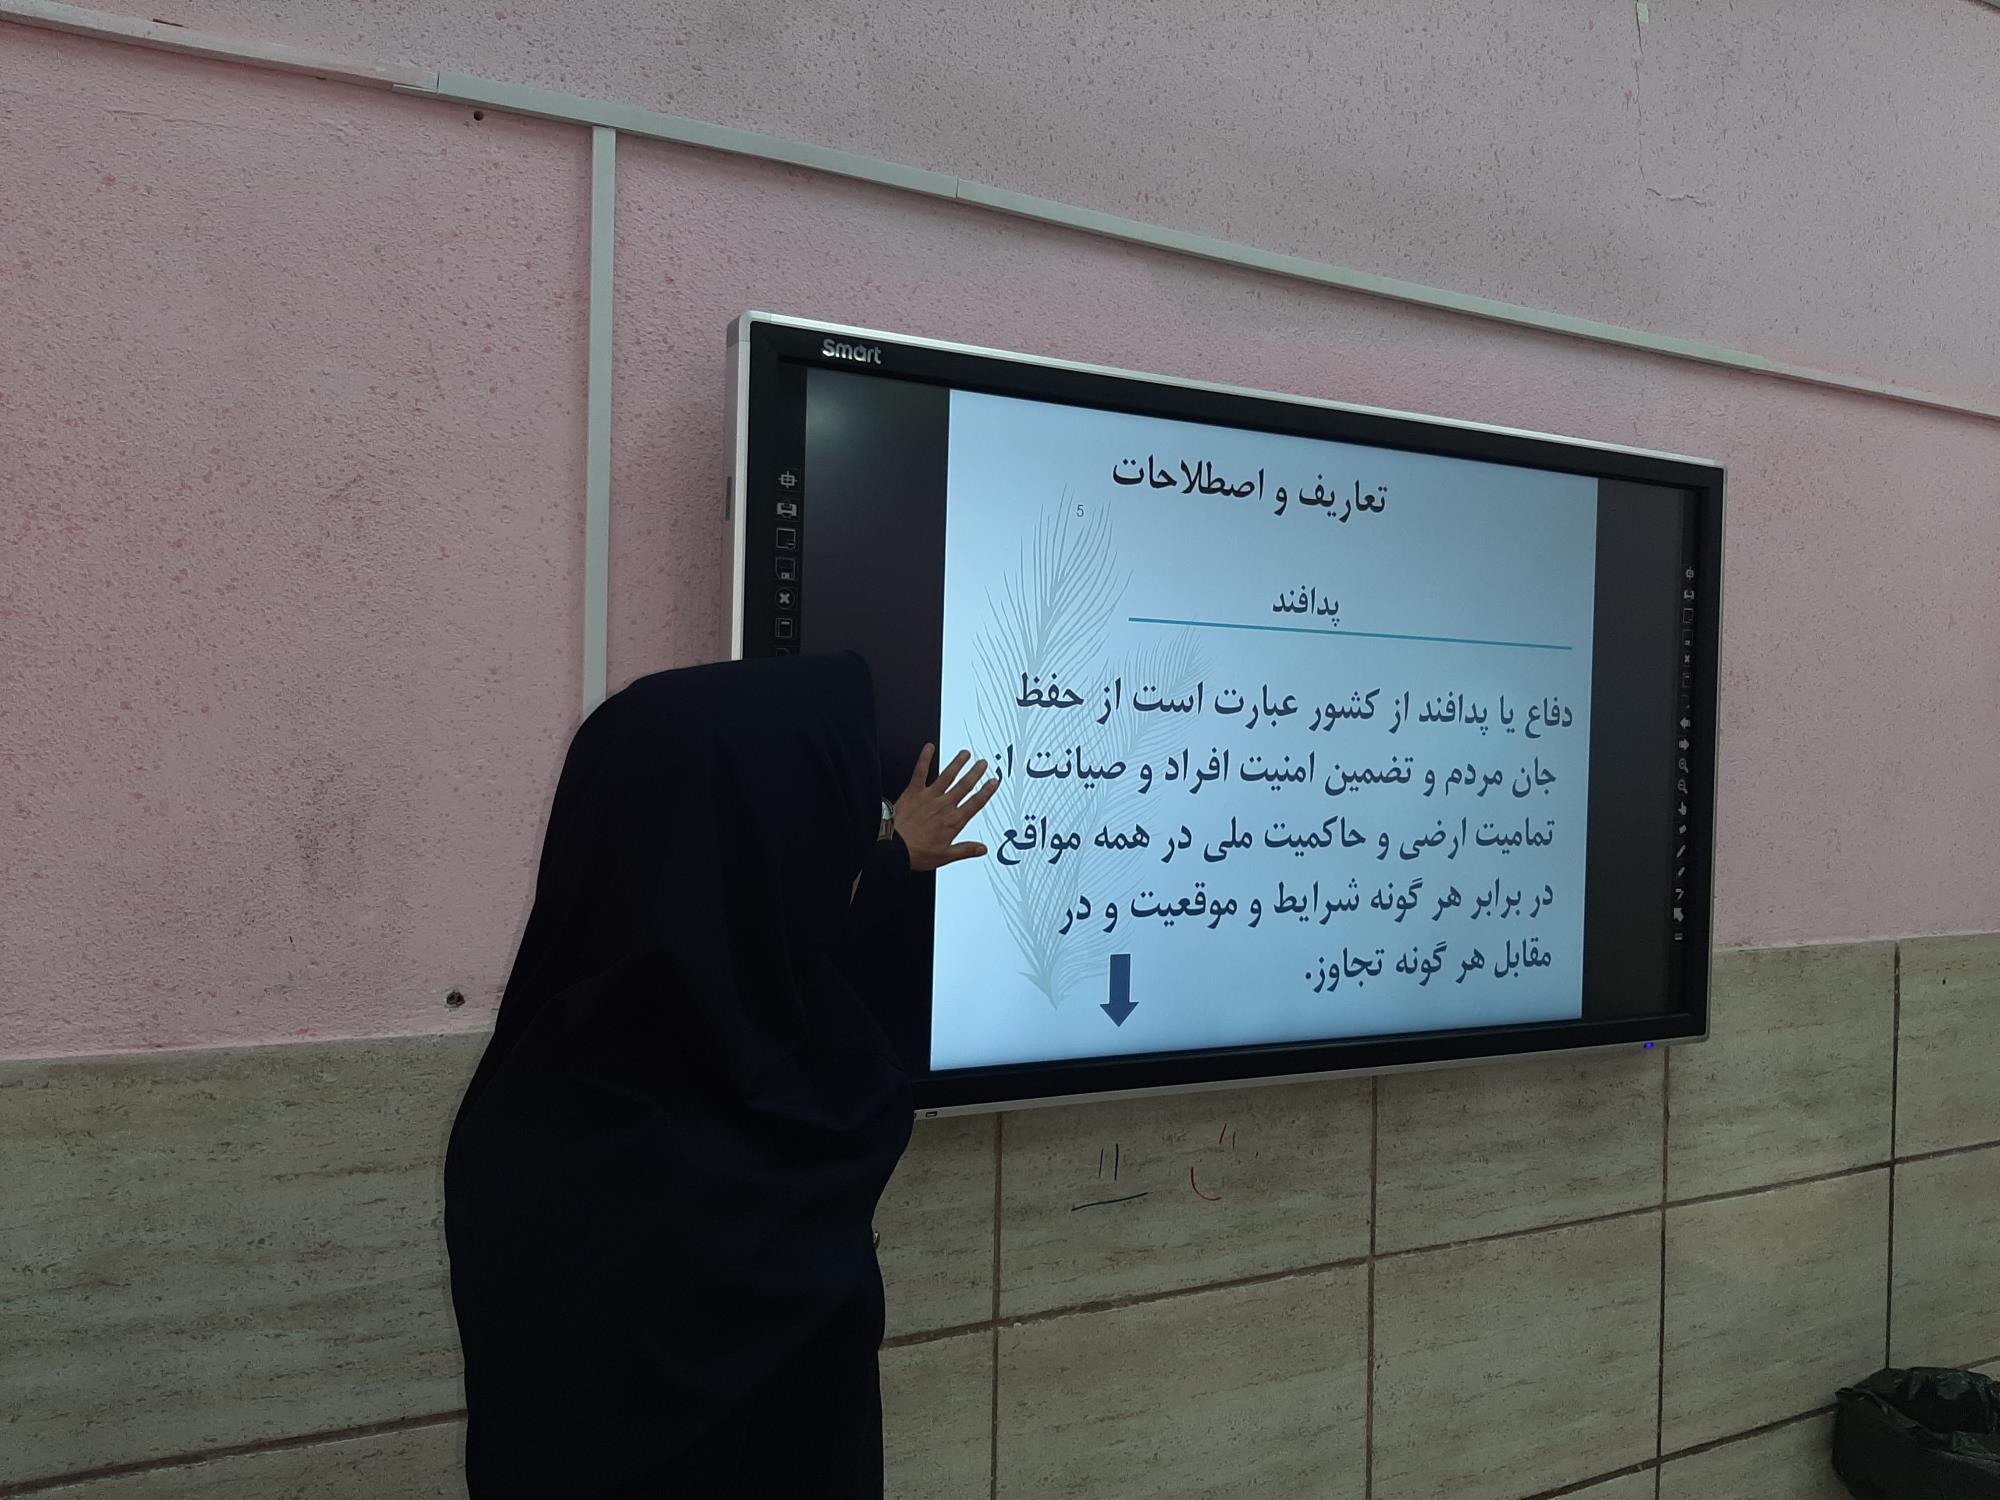 Smart
تعاریف و اصطلاحات
5
پدافند
دفاع یا پدافند از کشور عبارت است از حفظ
جان مردم و تضمین امنیت افراد و صیانت از
تمامیت ارضی و حاکمیت ملی در همه مواقع
در برابر هر گونه شرایط و موقعیت و در
مقابل هر گونه تجاوز.